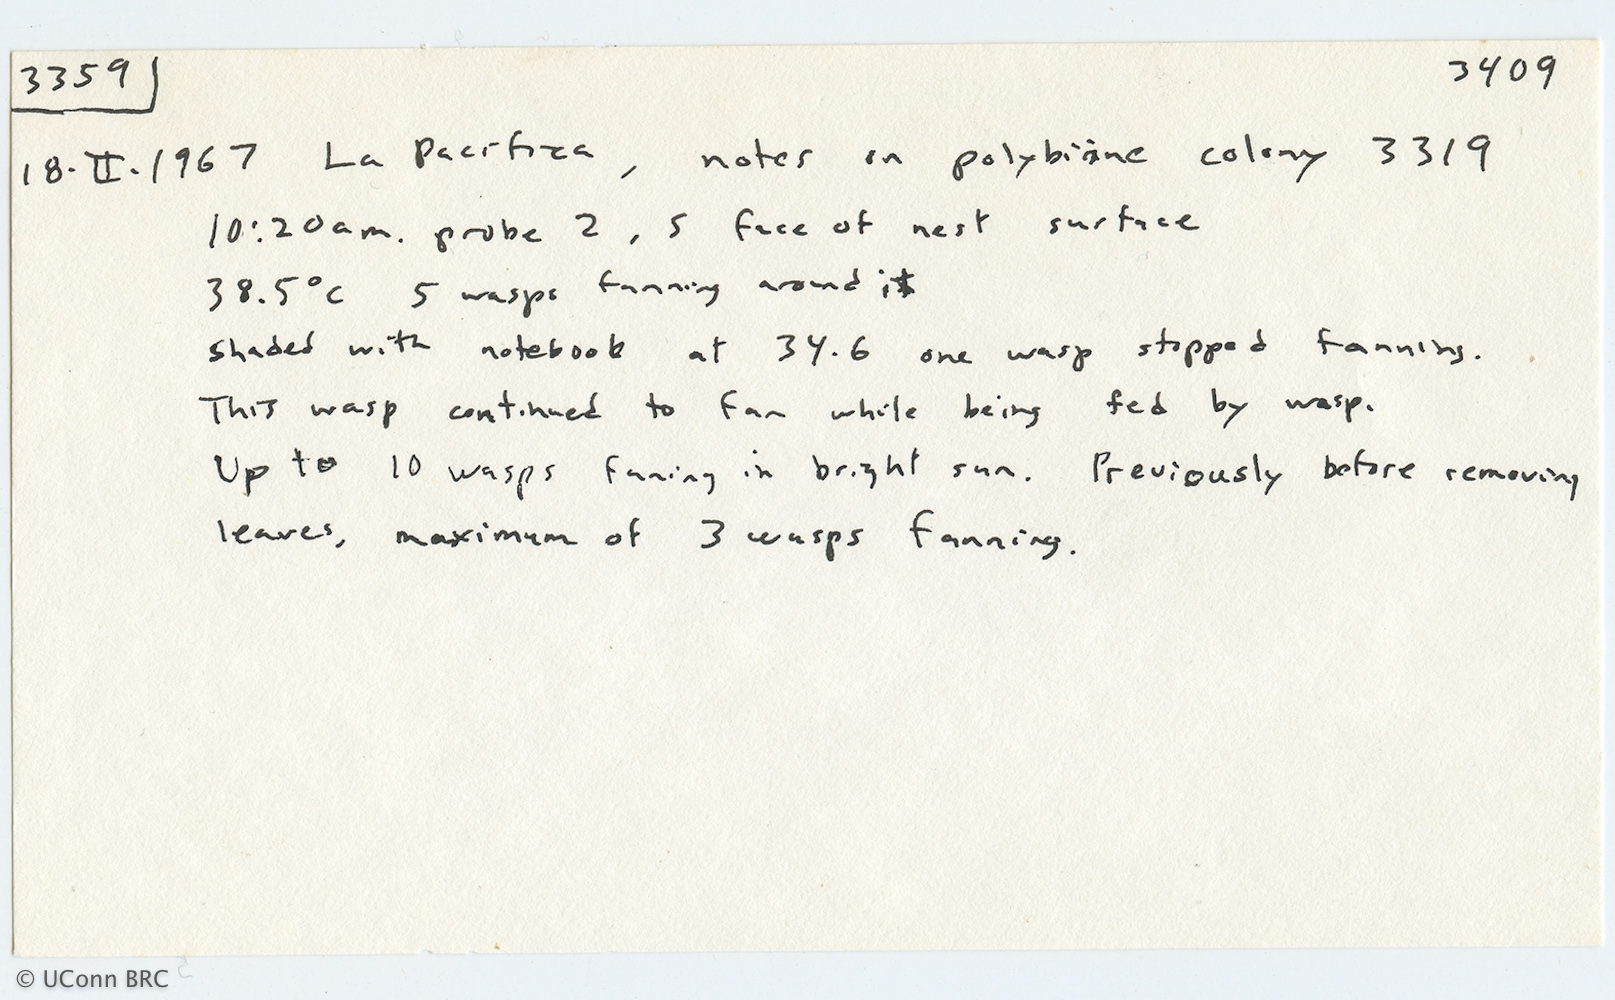 3359 3409
18.II.1967 La Pacifica, notes on polybiine colony 3319
10:20am. probe 2, S face of nest surface
38.5°C 5 wasps fanning around it
shaded with notebook at 34.6 one wasp stopped fanning.
This wasp continued to fan while being fed by wasp.
Up to 10 wasps faning in bright sun. Previously before removing
leaves, maximum of 3 wasps fanning.
© UConn BRC